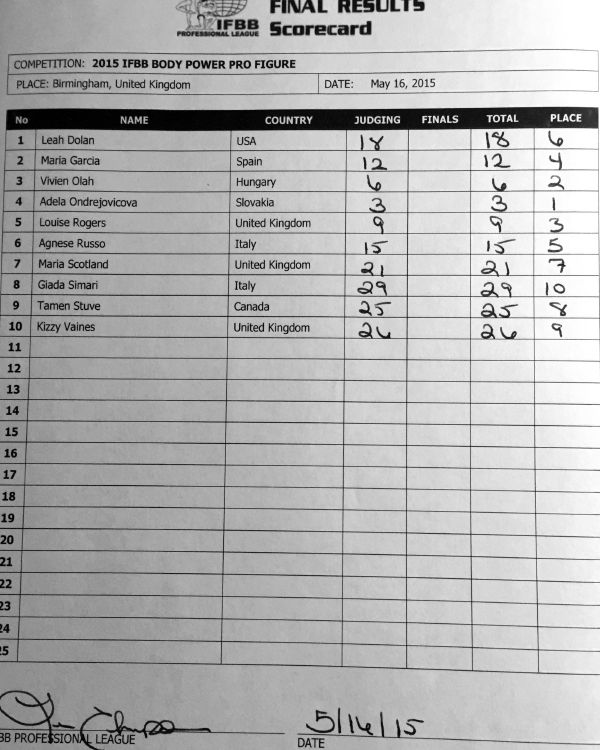 FINAL RESULTS
IFBB
PROFESSIONAL LEAGUE Scorecard
COMPETITION: 2015 IFBB BODY POWER PRO FIGURE
PLACE: Birmingham, United Kingdom DATE: May 16, 2015
No NAME COUNTRY JUDGING FINALS TOTAL PLACE
1 Leah Dolan USA 18 18 6
2 Maria Garcia Spain 12 12 4
3 Vivien Olah Hungary 6 6 2
4 Adela Ondrejovicova Slovakia 3 3 1
5 Louise Rogers United Kingdom 9 9 3
6 Agnese Russo Italy 15 15 5
7 Maria Scotland United Kingdom 21 21 7
8 Giada Simari Italy 29 29 10
9 Tamen Stuve Canada 25 25 8
10 Kizzy Vaines United Kingdom 26 26 9
11
12
13
14
15
16
17
18
19
20
21
22
23
24
25
5/16/15
BB PROFESSIONAL LEAGUE DATE